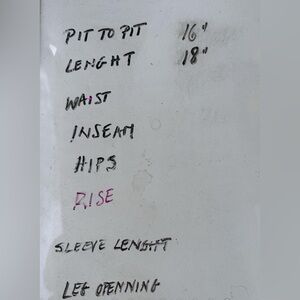 PIT TO PIT 16"
LENGHT 18"
WAIST
INSEAM
HIPS
RISE
SLEEVE LENGHT
LEG OPENNING